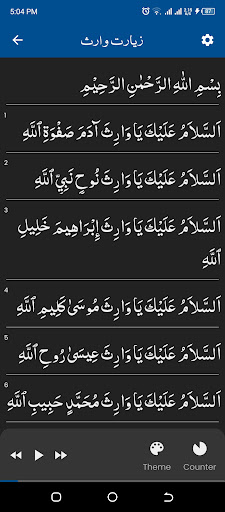 5:04 PM
زیارت وارث
بِسْمِ اللهِ الرَّحْمٰنِ الرَّحِيْمِ
1
اَلسَّلَامُ عَلَيْكَ يَا وَارِثَ آدَمَ صَفْوَةِ اللهِ
2
اَلسَّلَامُ عَلَيْكَ يَا وَارِثَ نُوحٍ نَبِيِّ اللهِ
3
اَلسَّلَامُ عَلَيْكَ يَا وَارِثَ إِبْرَاهِيمَ خَلِيلِ
اللهِ
4
اَلسَّلَامُ عَلَيْكَ يَا وَارِثَ مُوسَىٰ كَلِيمِ اللهِ
5
اَلسَّلَامُ عَلَيْكَ يَا وَارِثَ عِيسَىٰ رُوحِ اللهِ
6
اَلسَّلَامُ عَلَيْكَ يَا وَارِثَ مُحَمَّدٍ حَبِيبِ اللهِ
Theme Counter